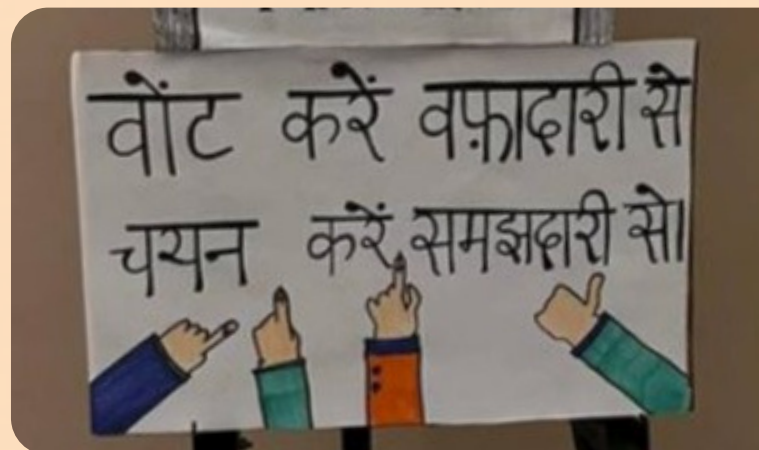 वोंट करें वफ़ादारी से
चयन करें समझदारी से।